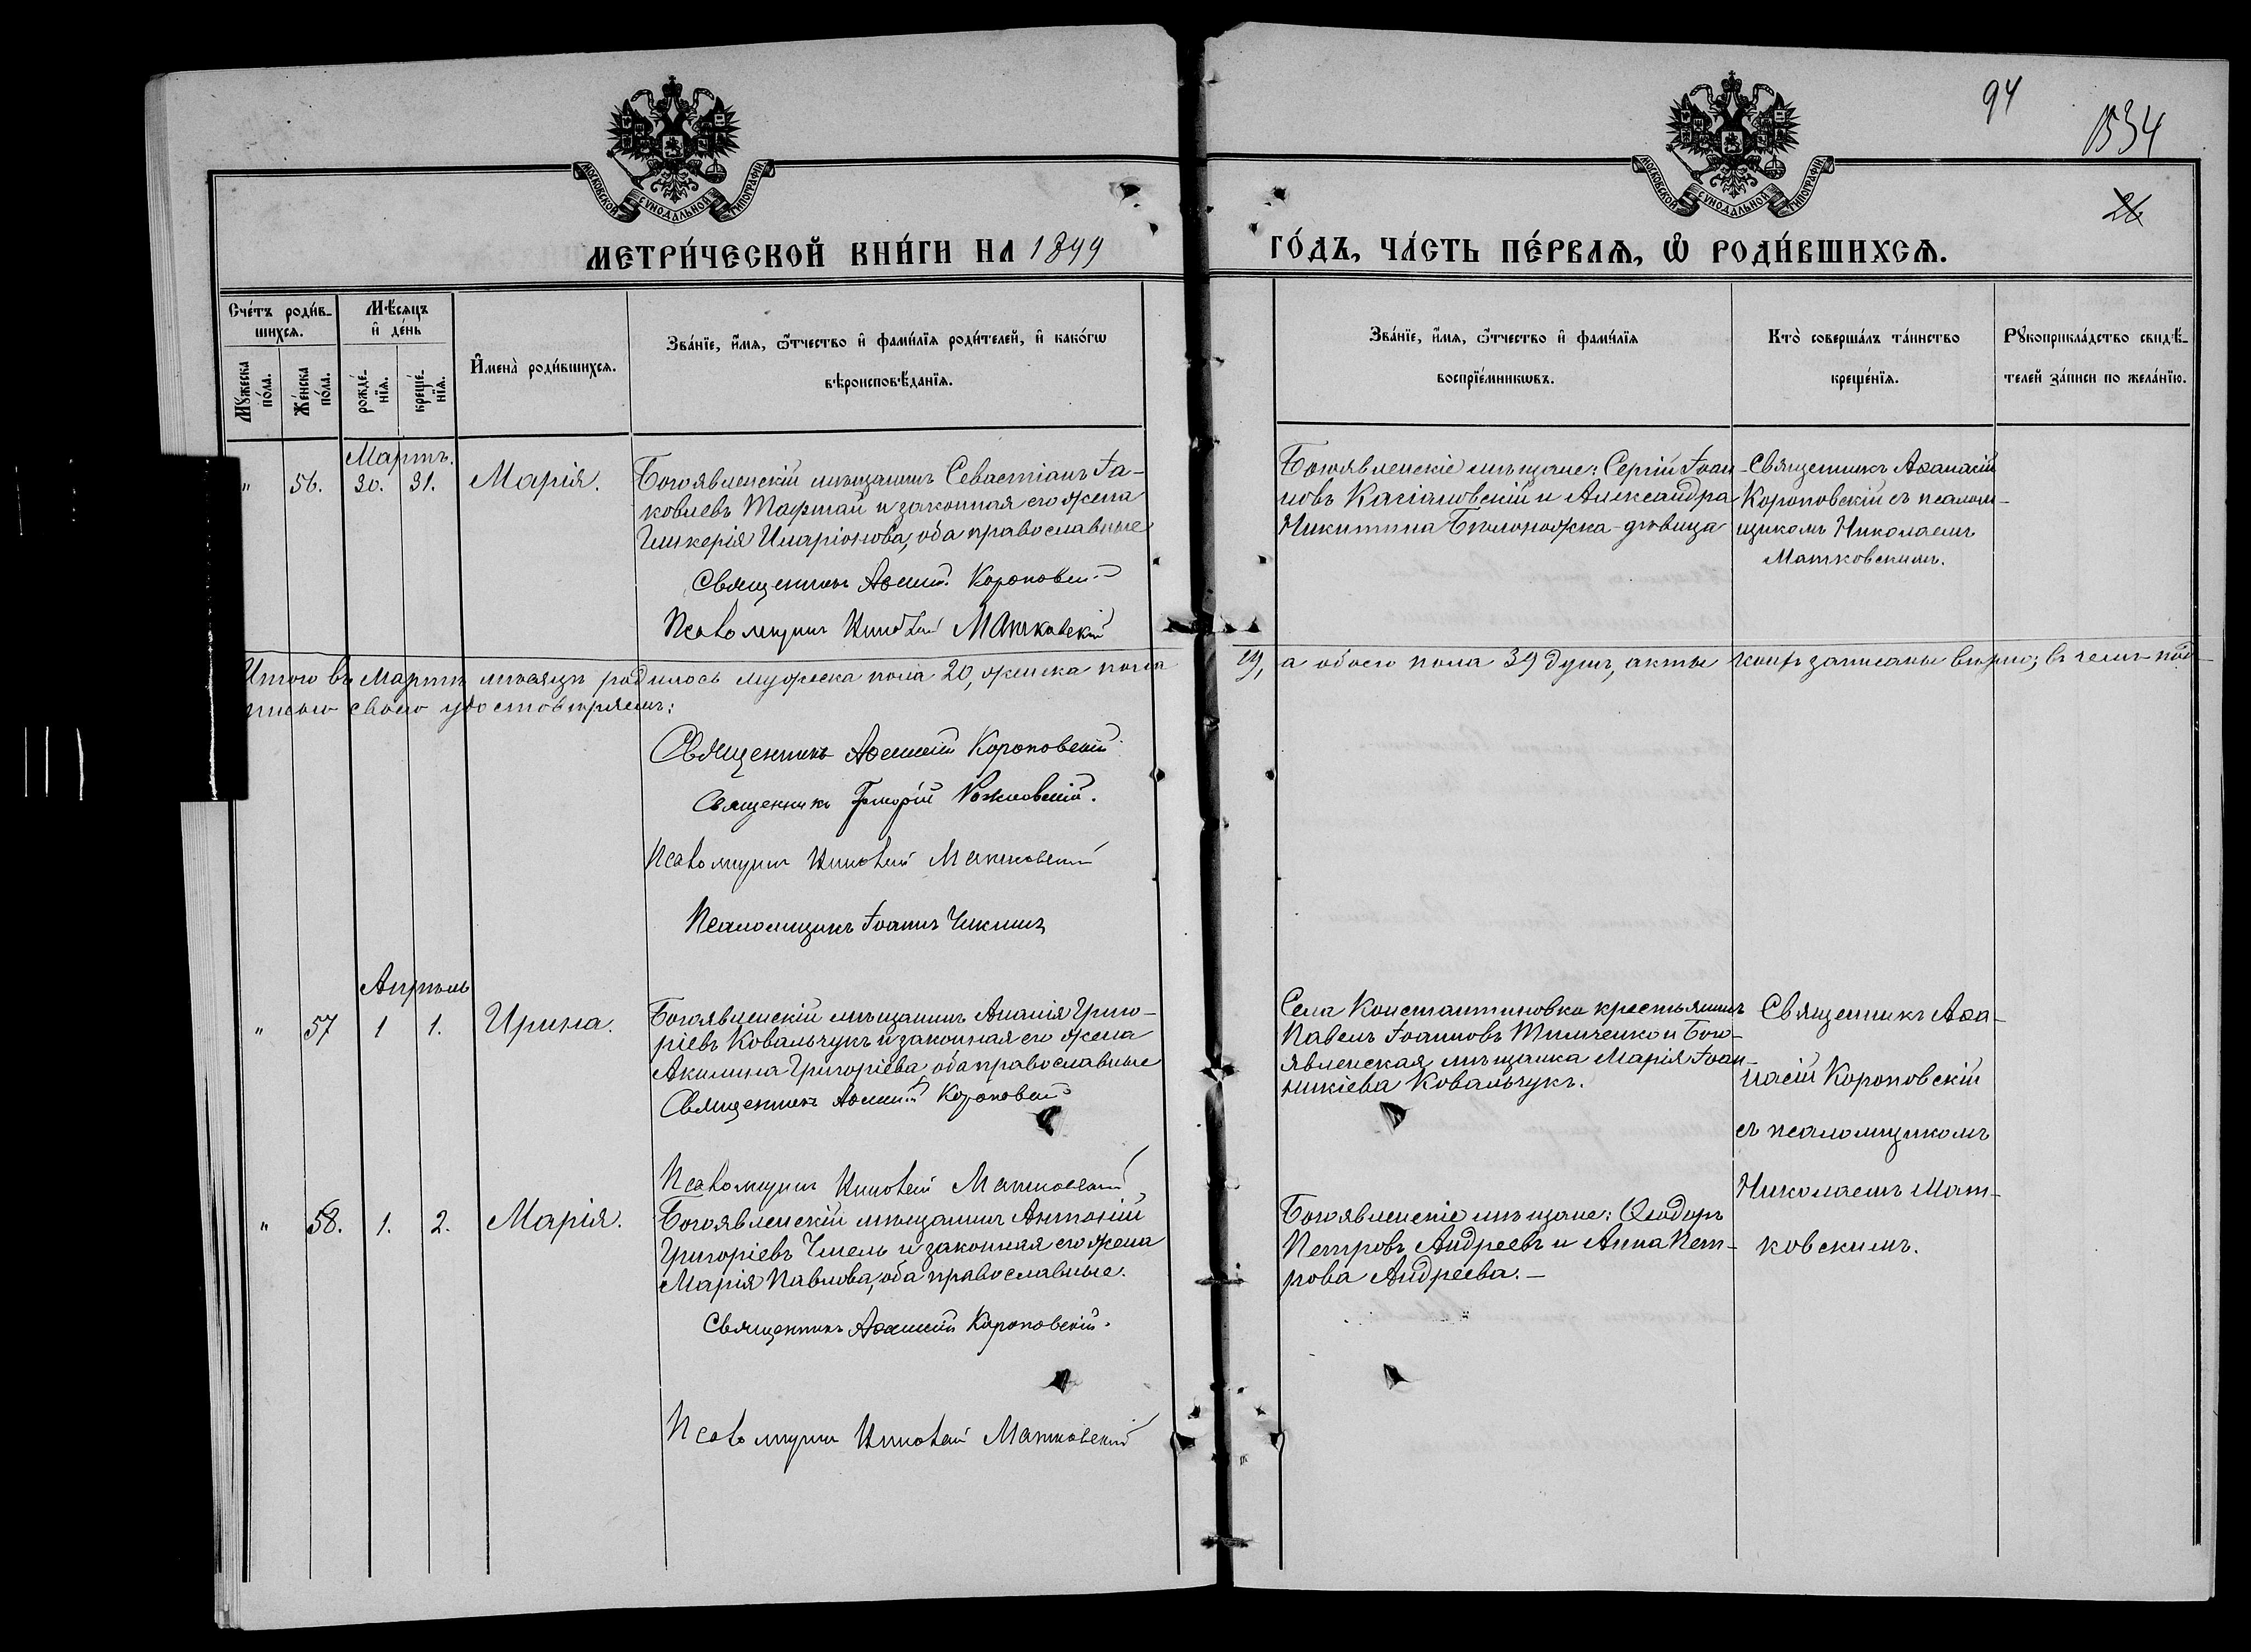 94
1534
26
МОСКОВСКОЙ СѴНОДАЛЬНОЙ ТИПОГРАФІИ
МОСКОВСКОЙ СѴНОДАЛЬНОЙ ТИПОГРАФІИ
МЕТРИ́ЧЕСКОЙ КНИ́ГИ НА 1899
ГО́ДЪ, ЧА́СТЬ ПЕ́РВАЯ, Ѽ РОДИ́ВШИХСЯ.
Сче́тъ роди́в-
шихся.
Мꙋ́жеска по́ла.
Же́нска по́ла.
Мѣ́сяцъ и҆ де́нь
рожде́-нїя.
креще́-нїя.
И҆мена̀ роди́вшихся.
Зва́нїе, и҆́мя, ѻ҆́тчество и҆ фами́лїя роди́телей, и҆ како́гѡ
вѣроисповѣ́данїя.
Зва́нїе, и҆́мя, ѻ҆́тчество и҆ фами́лїя
воспрїе́мникѡвъ.
Кто̀ соверша́лъ та́инство
креще́нїя.
Рꙋкоприкла́дство свидѣ́-
телей за́писи по жела́нїю.
Мартъ.
" 56. 30. 31. Марія.
Богоявленскій мѣщанинъ Севастіанъ Іа-
ковлевъ Тафтай и законная его жена
Гликерія Иларіонова, оба православные
Священникъ Аѳанасій Короповскій
Псаломщикъ Николай Матковскій
Богоявленскіе мѣщане: Сергій Іоан-
новъ Качіановскій и Александра
Никитина Бѣлоножка - дѣвица
Священникъ Аѳанасій
Короповскій съ псалом-
щикомъ Николаемъ
Матковскимъ.
Итого въ Мартѣ мѣсяцѣ родилось мужеска пола 20, женска пола
19, а обоего пола 39 душъ, акты коихъ записаны вѣрно; въ чемъ под-
писью своею удостовѣряемъ:
Священникъ Аѳанасій Короповскій
Священникъ Григорій
Псаломщикъ Николай Матковскій
Псаломщикъ Іоаннъ Чикинъ
Апрѣль
" 57 1 1. Ирина.
Богоявленскій мѣщанинъ Ананія Григо-
ріевъ Ковальчукъ и законная его жена
Акилина Григоріева, оба православные
Священникъ Аѳанасій Короповскій
Псаломщикъ Николай Матковскій
Села Константиновки крестьянинъ
Павелъ Іоанновъ Тимченко и Бого-
явленская мѣщанка Марія Іоан-
никіева Ковальчукъ.
Священникъ Аѳа-
насій Короповскій
съ псаломщикомъ
Николаемъ Мат-
ковскимъ.
" 58. 1. 2. Марія.
Богоявленскій мѣщанинъ Антоній
Григоріевъ Чмель и законная его жена
Марія Павлова, оба православные.
Священникъ Аѳанасій Короповскій.
Псаломщикъ Николай Матковскій
Богоявленскіе мѣщане: Ѳеодоръ
Петровъ Андреевъ и Анна Пет-
рова Андреева. —